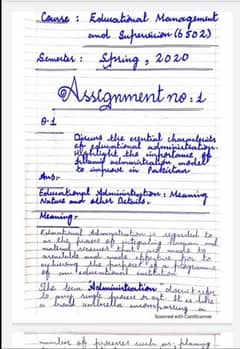 Course : Educational Management
and Supervision (6502)
Semester : Spring, 2020
Assignment no : 1
Q.1
Discuss the essential characteristics
of educational administration.
Highlight the importance of
Islamic administration model
to improve in Pakistan
Ans.
Educational Administration : Meaning
Nature and other Details.
Meaning:-
Educational Administration is regarded to
as the process of integrating human and
material resources that are made to
available and made effective for to
achieving the purpose of a programme
of an educational institution
The term Administration doesn't refer
to any single process or act. It is like
a broad umbrella encompassing a
number of processes such as; planning
Scanned with CamScanner